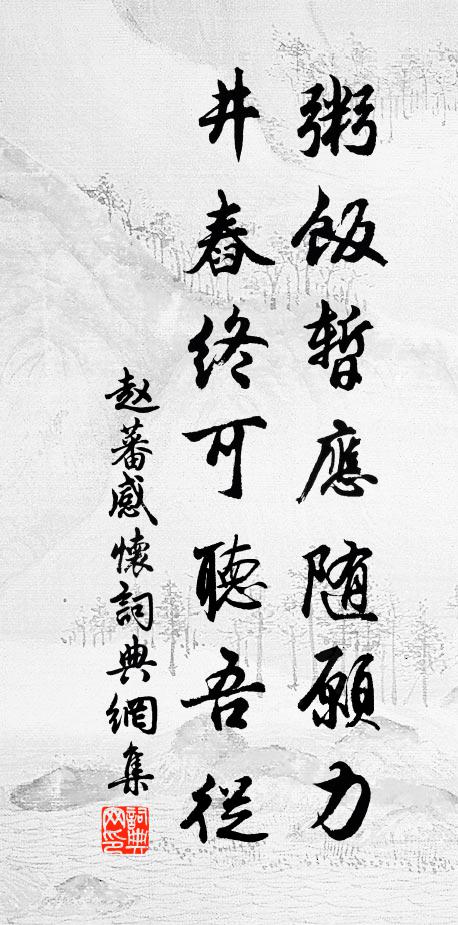 粥飯暫應随願力
井舂終可聽吾從
赵蕃感懷詞典網集
詞典网印